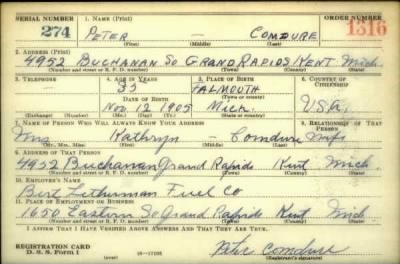 SERIAL NUMBER 1. NAME (Print) ORDER NUMBER
274 PETER — COMDURE 1316
(First) (Middle) (Last)
2. ADDRESS (Print)
4952 BUCHANAN SO GRAND RAPIDS KENT Mich.
(Number and street or R. F. D. number) (Town) (County) (State)
3. TELEPHONE 4. AGE IN YEARS 5. PLACE OF BIRTH 6. COUNTRY OF CITIZENSHIP
— 35 FALMOUTH
DATE OF BIRTH (Town or county)
Nov. 12 1905 Mich. U.S.A.
(Exchange) (Number) (Mo.) (Day) (Yr.) (State or country)
7. NAME OF PERSON WHO WILL ALWAYS KNOW YOUR ADDRESS 8. RELATIONSHIP OF THAT PERSON
Mrs Kathryn — Comdure Wife
(Mr., Mrs., Miss) (First) (Middle) (Last)
9. ADDRESS OF THAT PERSON
4952 Buchanan Grand Rapids Kent Mich.
(Number and street or R. F. D. number) (Town) (County) (State)
10. EMPLOYER'S NAME
Bert Fuel Co
11. PLACE OF EMPLOYMENT OR BUSINESS
1650 Eastern So Grand Rapids Kent Mich
(Number and street or R. F. D. number) (Town) (County) (State)
I AFFIRM THAT I HAVE VERIFIED ABOVE ANSWERS AND THAT THEY ARE TRUE.
REGISTRATION CARD
D. S. S. Form 1 16—17105 Peter Comdure
(Registrant's signature)